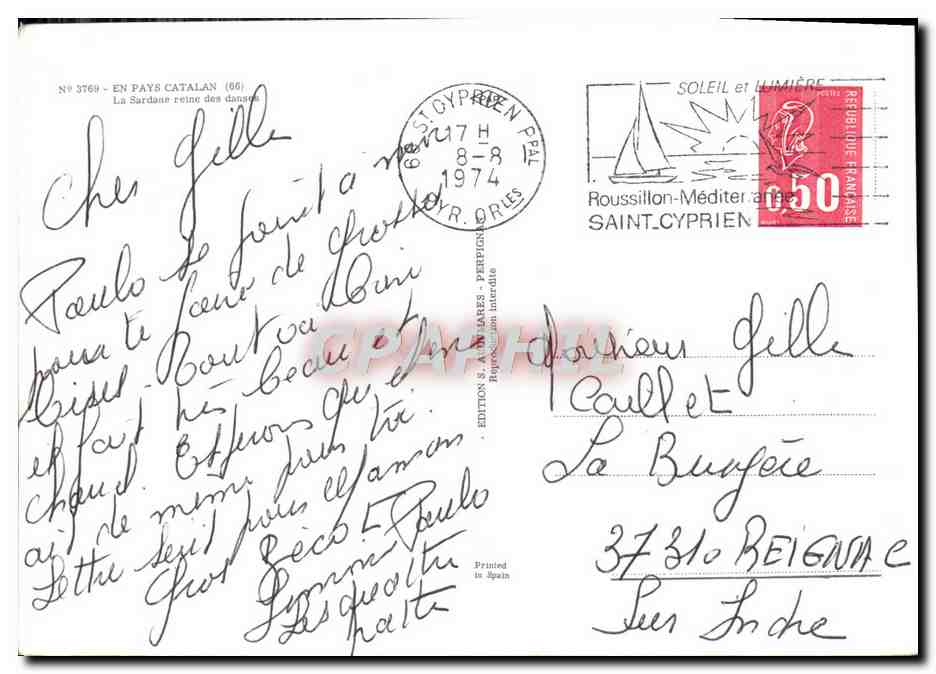 Nº 3769 - EN PAYS CATALAN (66)
La Sardane reine des danses
Cher Gille
Paulo se joint a moi
pour te faire de Grosses
Bises. Tout va bien
il fait très beau et
chaud. Espérons qu
de même pour toi.
Lettre suit pour
Gros Bécot Paulo
Simone
Les quattre
patte
66 ST CYPRIEN PPAL
17 H
8-8
1974
PYR. ORLES
SOLEIL et LUMIÈRE
Roussillon-Méditerranée
SAINT-CYPRIEN
POSTES
REPUBLIQUE FRANÇAISE
0,50
EDITION S. AUDUMARES - PERPIGNAN
Reproduction interdite
CPAPHIL
Monsieur Gille
Caillet
La
37310 REIGNAC
Sur Indre
Printed
in Spain